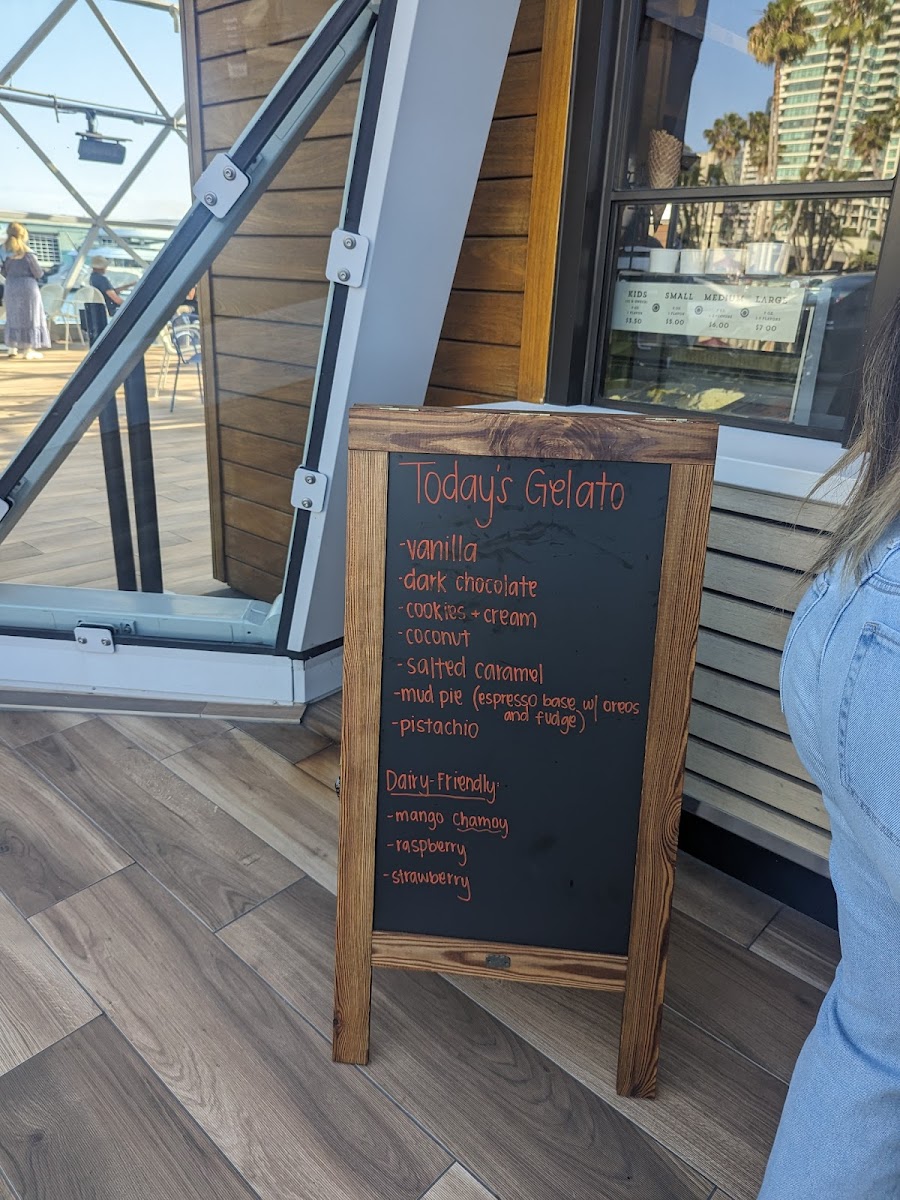 Today's Gelato
-vanilla
-dark chocolate
-cookies + cream
-coconut
-salted caramel
-mud pie (espresso base w/ oreos
and fudge)
-pistachio
Dairy-Friendly:
-mango chamoy
-raspberry
-strawberry
KIDS SMALL MEDIUM LARGE
$3.50 $5.00 $6.00 $7.00